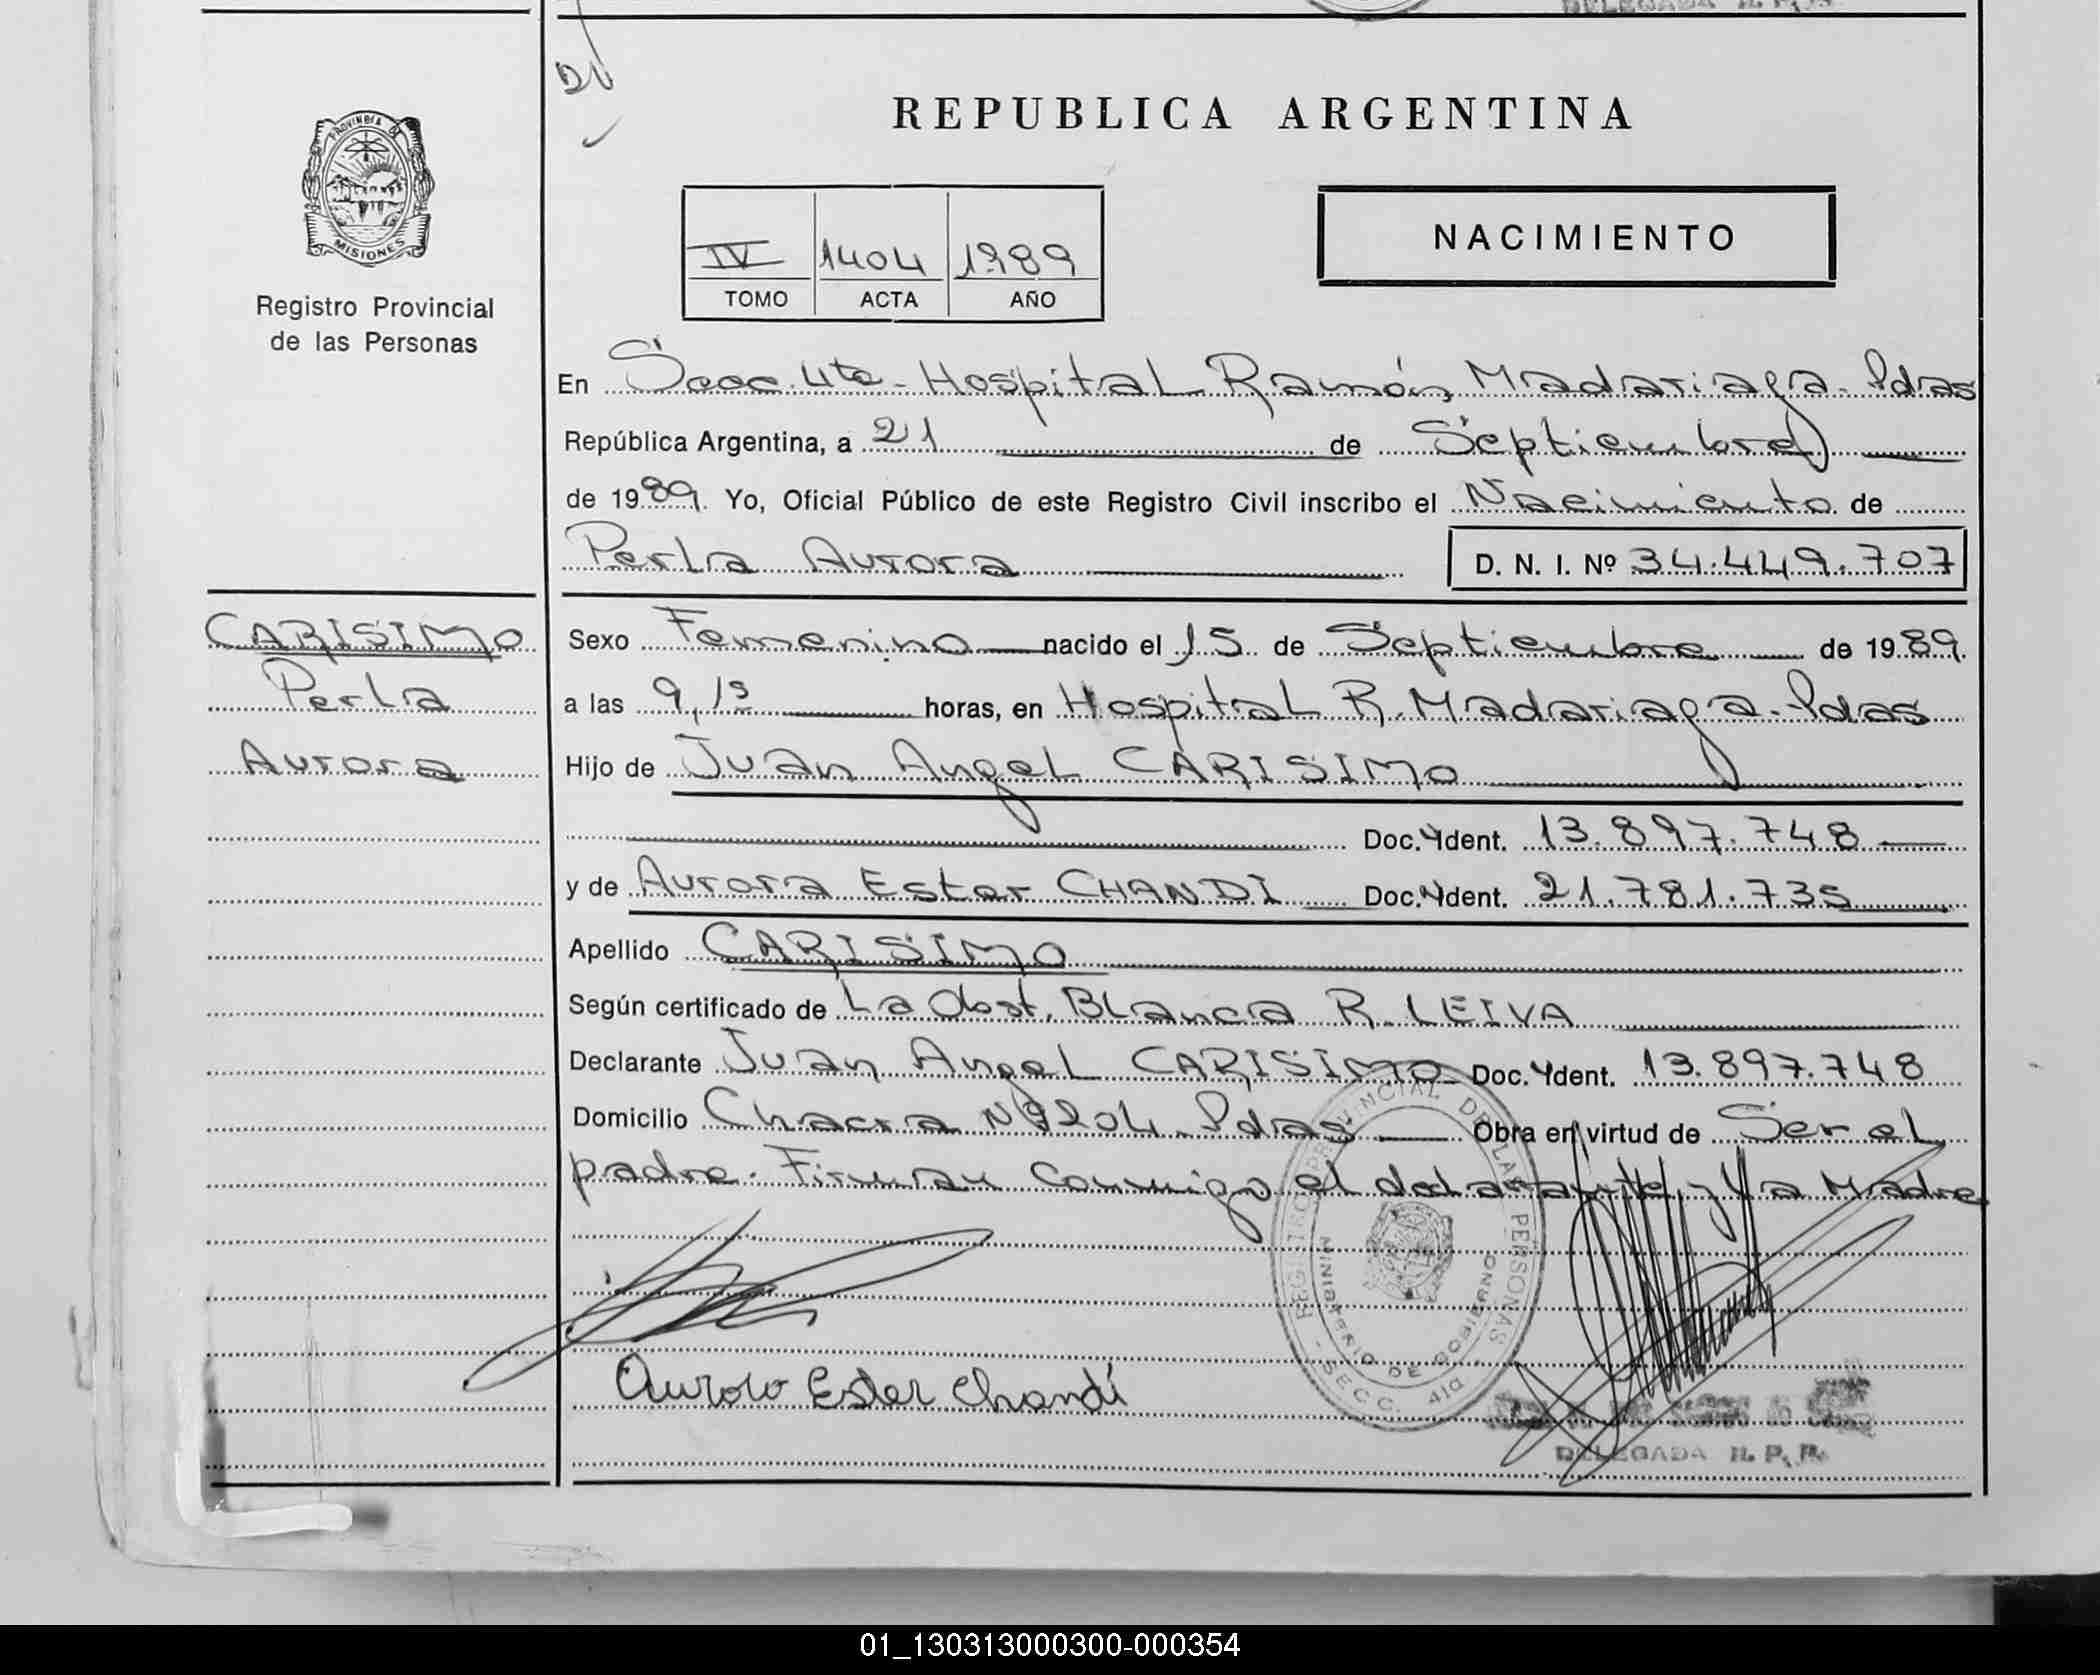 DELEGADA R. P. P.
DV
REPUBLICA ARGENTINA
PROVINCIA DE
MISIONES
Registro Provincial
de las Personas
IV 1404 1989
TOMO ACTA AÑO
NACIMIENTO
En Secc. 4ta - Hospital Ramón Madariaga - Pdas
República Argentina, a 21 de Septiembre
de 1989. Yo, Oficial Público de este Registro Civil inscribo el Nacimiento de
Perla Aurora D. N. I. Nº 34.449.707
CARISIMO
Perla
Aurora
Sexo Femenino nacido el 15 de Septiembre de 1989.
a las 9,15 horas, en Hospital R. Madariaga - Pdas
Hijo de Juan Angel CARISIMO
Doc. Ydent. 13.897.748
y de Aurora Ester CHANDI Doc. Ydent. 21.781.735
Apellido CARISIMO
Según certificado de La Obst. Blanca R. LEIVA
Declarante Juan Angel CARISIMO Doc. Ydent. 13.897.748
Domicilio Chacra Nº 204 - Pdas Obra en virtud de Ser el
padre. Firman conmigo el declarante y la Madre
REGISTRO PROVINCIAL DE LAS PERSONAS
MINISTERIO DE GOBIERNO
- SECC. 4ta -
Aurora Ester Chandí
DELEGADA R. P. P.
01_130313000300-000354